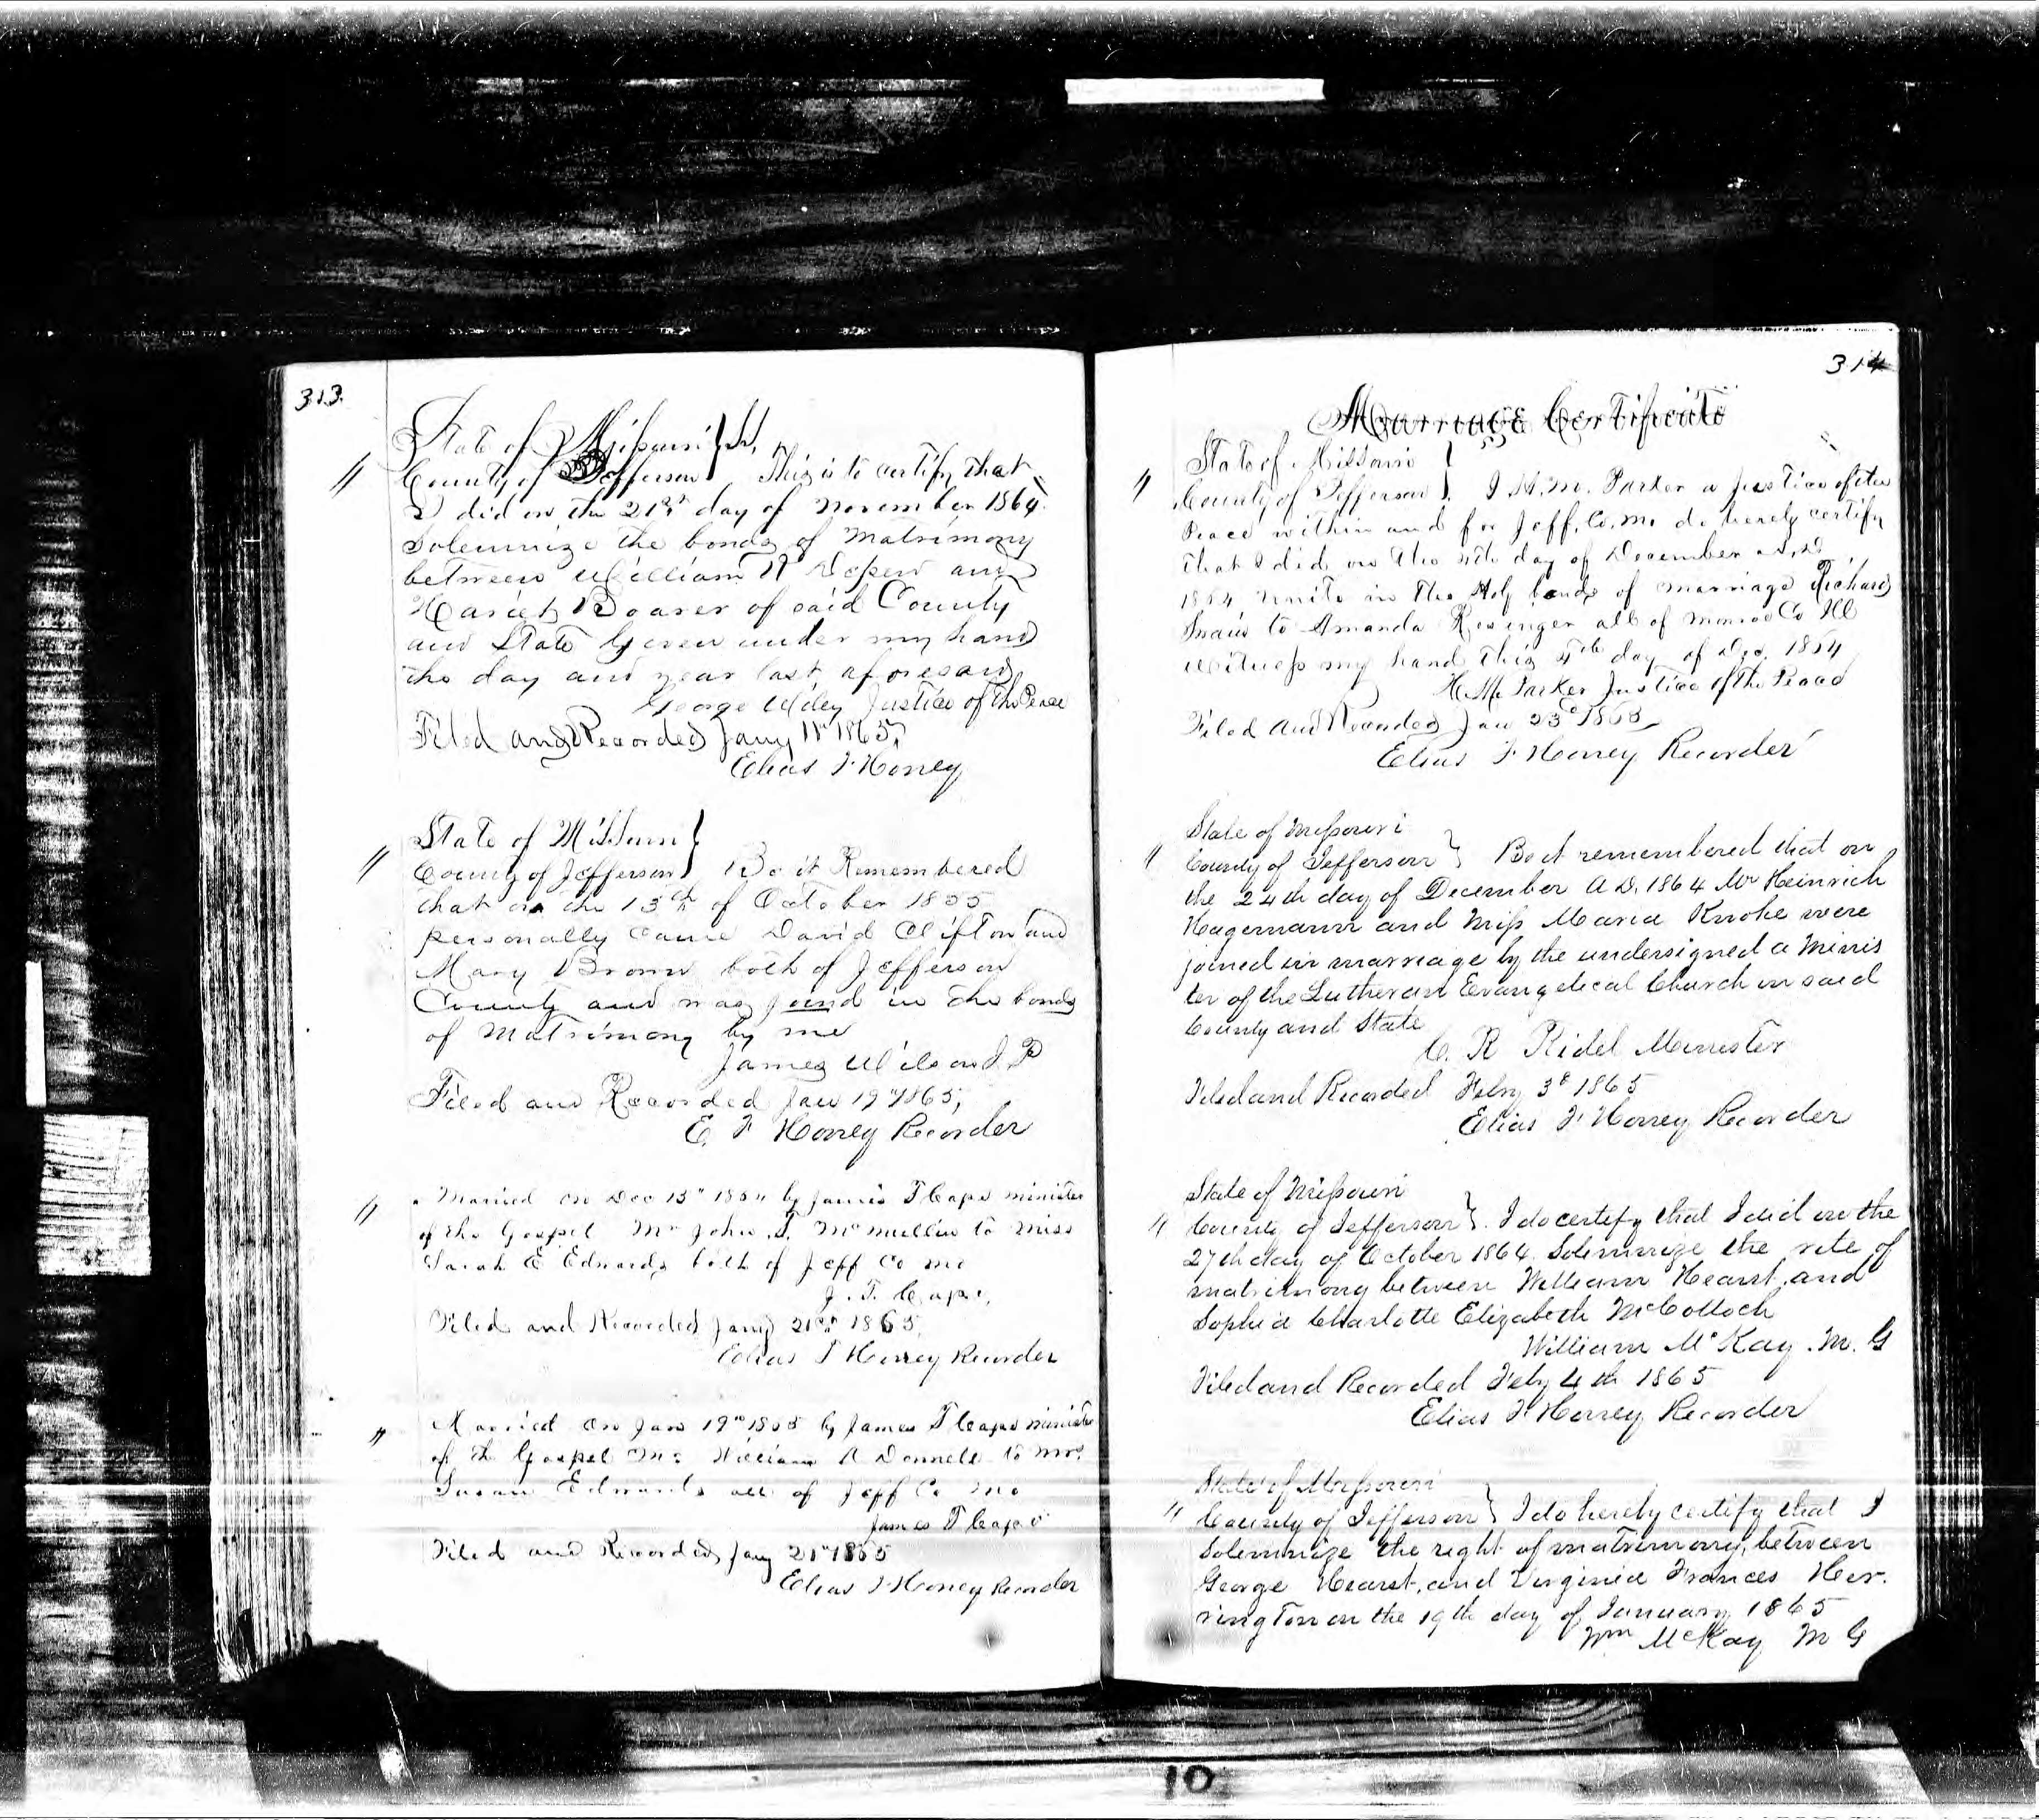 313
State of Missouri } SS,
County of Jefferson } This is to certify that
I did on the 21st day of November 1864
Solemnize the bonds of Matrimony
between William and
Hariet Boarer of said County
and State Given under my hand
the day and year last aforesaid
George Wiley Justice of the Peace
Filed and Recorded Jany 11th 1865,
Elias F Honey
State of Missouri }
County of Jefferson } Be it Remembered
that on the 15th of October 1855
personally came David Clifton and
Mary Brown both of Jefferson
County and was joind in the bonds
of Matrimony by me
James Wilson J. P
Filed and Recorded Jan 19th 1865,
E. F Honey Recorder
Married on Dec 15th by James T Cape minister
of the Gospel Mr John S. McMullin to Miss
Sarah E Edwards both of Jeff Co Mo
J. T. Cape,
Filed and Recorded Jany 21st 1865,
Elias F Honey Recorder
Married on Jan 19th 1865 by James T Cape minister
of the Gospel Mr William A Donnell to Mrs
Susan Edwards all of Jeff Co Mo
James T Cape
Filed and Recorded Jany 21st 1865
Elias F Honey Recorder
314
Marriage Certificate
State of Missouri }
County of Jefferson }. I H. M. Parker a Justice of the
Peace within and for Jeff. Co, Mo do hereby certify
that I did on the 4th day of December A, D
1864 unite in the Holy bonds of marriage Richard
to Amanda all of Monroe Co Ill
Witness my hand this 4th day of Dec. 1864
H. M. Parker Justice of the Peace
Filed and Recorded Jan 23d 1865
Elias F Honey Recorder
State of Missouri
County of Jefferson } Be it remembered that on
the 24th day of December A. D. 1864 Mr Heinrich
Hagemann and Miss Maria Knoke were
joined in marriage by the undersigned a Minis
ter of the Lutheran Evangelical Church in said
County and State
C. R Ridel Minister
Filed and Recorded Feby 3d 1865
Elias F Honey Recorder
State of Missouri
County of Jefferson }. I do certify that I did on the
27th day of October 1864 Solemnize the rite of
matrimony between William Hearst, and
Sophia Charlotte Elizabeth McColloch
William McKay. M. G
Filed and Recorded Feby 4th 1865
Elias F Honey Recorder
State of Missouri
County of Jefferson } I do hereby certify that I
Solemnize the right of matrimony, between
George Hearst, and Virginia Frances Her.
rington on the 19th day of January 1865
Wm McKay M G
10